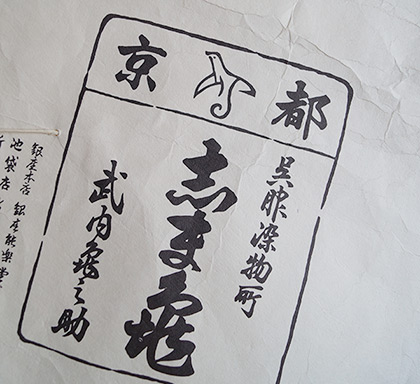 京都
呉服染物所
志ま亀
武内亀之助
銀座本店 銀座能楽堂
池袋店